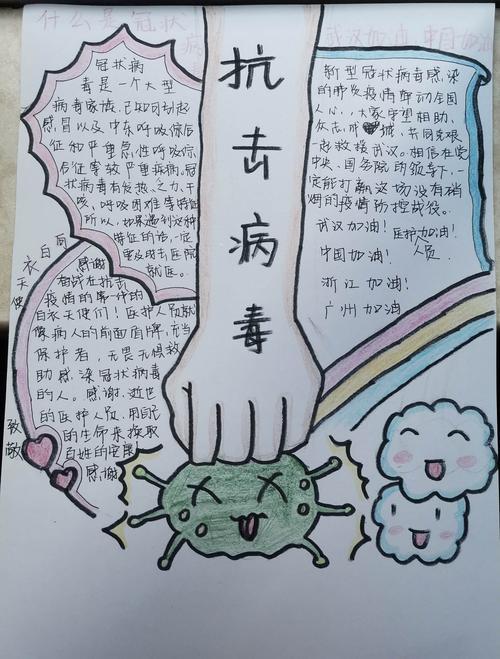 什么是冠状
病
武汉加油,中国加油
抗
击
病
毒
冠状病
毒是一个大型
病毒家族,已知可引起
感冒以及中东呼吸综合
征和严重急性呼吸综
合征等较严重疾病。冠
状病毒有发热、乏力、干
咳、呼吸困难等特征
所以,如果遇到这种
特征的话,一定
要及时去医院
就医。
新型冠状病毒感染
的肺炎疫情牵动全国
人心,大家守望相助,
众志成城,共同克艰
一起救援武汉。相信在党
中央、国务院的领导下,一
定能打赢这场没有硝
烟的疫情防控战役。
武汉加油!
医护加油!
人员
中国加油!
浙江加油!
广州加油
白
衣
天
使
致
敬
感谢
奋战在抗击
疫情的第一线的
白衣天使们!医护人员就
像病人的前面盾牌,充当
保护者,无畏无惧救
助感染冠状病毒
的人。感谢逝世
的医护人员,用自己
的生命来换取
百姓的安康
感谢